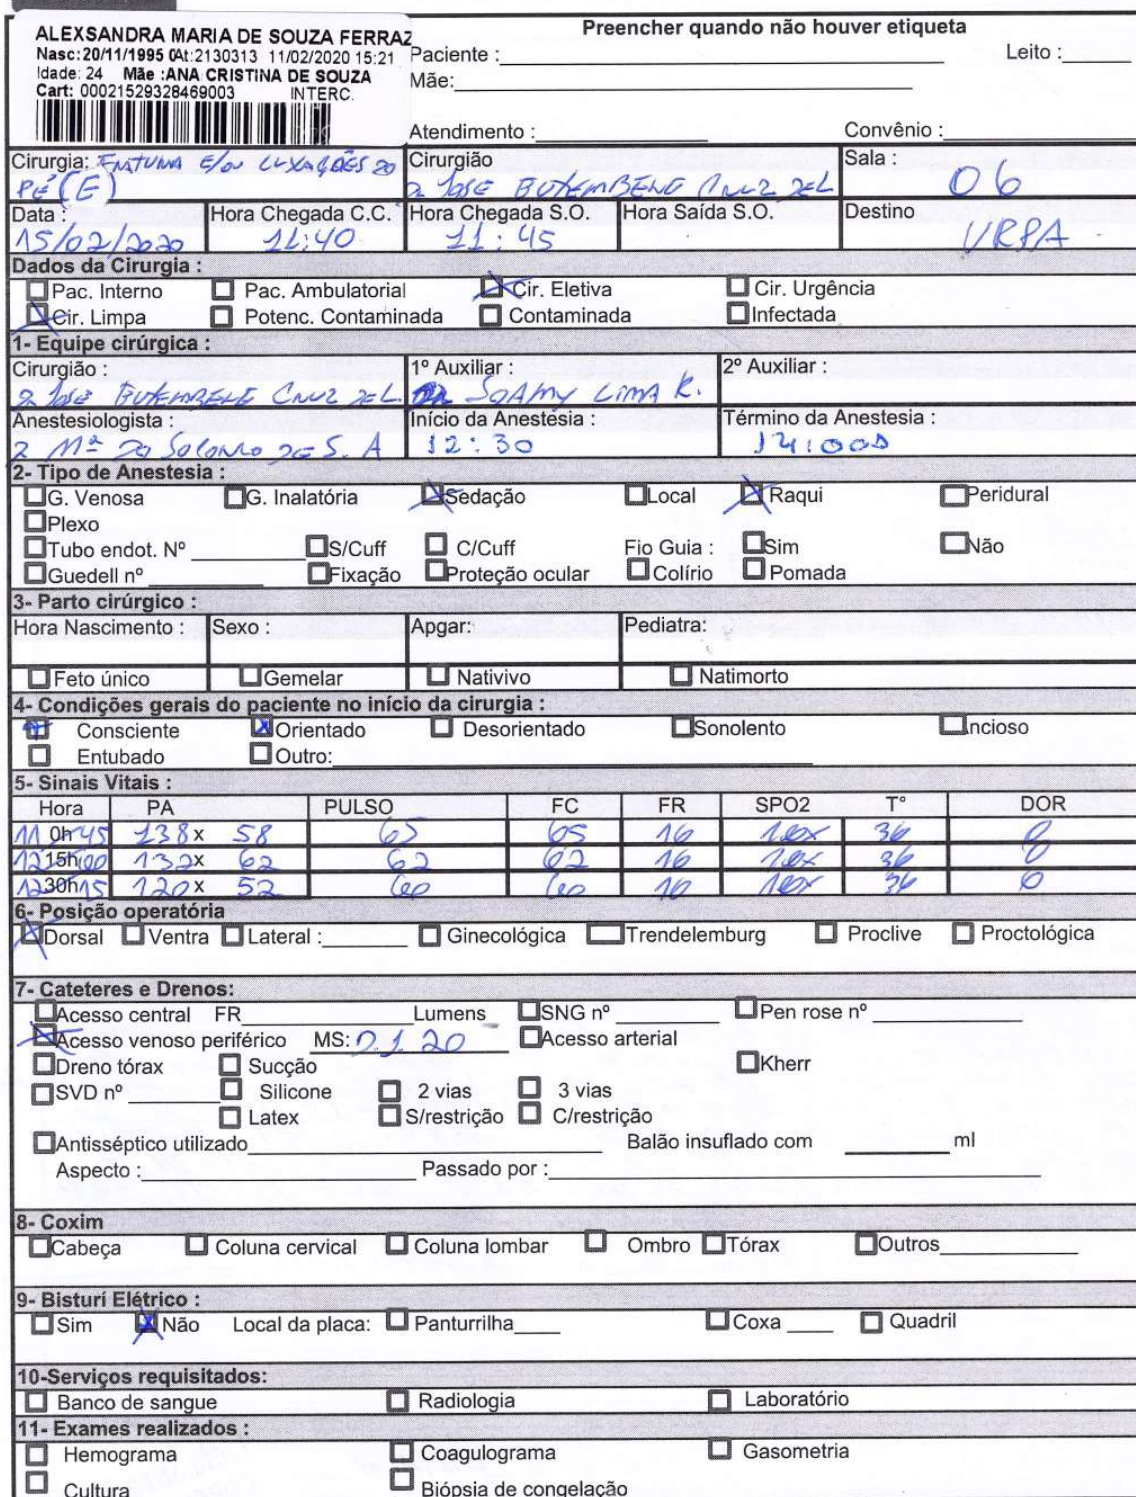 ALEXSANDRA MARIA DE SOUZA FERRAZ
Nasc:20/11/1995 At:2130313 11/02/2020 15:21
Idade: 24 Mãe :ANA CRISTINA DE SOUZA
Cart: 00021529328469003 INTERC.
Preencher quando não houver etiqueta
Paciente : Leito :
Mãe:
Atendimento : Convênio :
Cirurgia: E/OU LUXAÇÕES DO PÉ (E)
Cirurgião JOSE CRUZ DEL
Sala : 06
Data : 15/02/2020
Hora Chegada C.C. 11:40
Hora Chegada S.O. 11:45
Hora Saída S.O.
Destino URPA
Dados da Cirurgia :
Pac. Interno Pac. Ambulatorial Cir. Eletiva Cir. Urgência
Cir. Limpa Potenc. Contaminada Contaminada Infectada
1- Equipe cirúrgica :
Cirurgião : JOSE CRUZ DEL.
1º Auxiliar : LIMA R.
2º Auxiliar :
Anestesiologista : Mª DO SOCORRO DE S. A
Início da Anestesia : 12:30
Término da Anestesia :
2- Tipo de Anestesia :
G. Venosa G. Inalatória Sedação Local Raqui Peridural
Plexo
Tubo endot. Nº S/Cuff C/Cuff Fio Guia : Sim Não
Guedell nº Fixação Proteção ocular Colírio Pomada
3- Parto cirúrgico :
Hora Nascimento : Sexo : Apgar: Pediatra:
Feto único Gemelar Nativivo Natimorto
4- Condições gerais do paciente no início da cirurgia :
Consciente Orientado Desorientado Sonolento Incioso
Entubado Outro:
5- Sinais Vitais :
Hora PA PULSO FC FR SPO2 T° DOR
11 0h 45 138 x 58 65 65 16 36 0
12 15h 00 132 x 62 62 62 16 36 0
12 30h 15 120 x 52 60 60 16 36 0
6- Posição operatória
Dorsal Ventra Lateral : Ginecológica Trendelemburg Proclive Proctológica
7- Cateteres e Drenos:
Acesso central FR Lumens SNG nº Pen rose nº
Acesso venoso periférico MS: 20 Acesso arterial
Dreno tórax Sucção Kherr
SVD nº Silicone 2 vias 3 vias
Latex S/restrição C/restrição
Antisséptico utilizado Balão insuflado com ml
Aspecto : Passado por :
8- Coxim
Cabeça Coluna cervical Coluna lombar Ombro Tórax Outros
9- Bisturí Elétrico :
Sim Não Local da placa: Panturrilha Coxa Quadril
10-Serviços requisitados:
Banco de sangue Radiologia Laboratório
11- Exames realizados :
Hemograma Coagulograma Gasometria
Cultura Biópsia de congelação